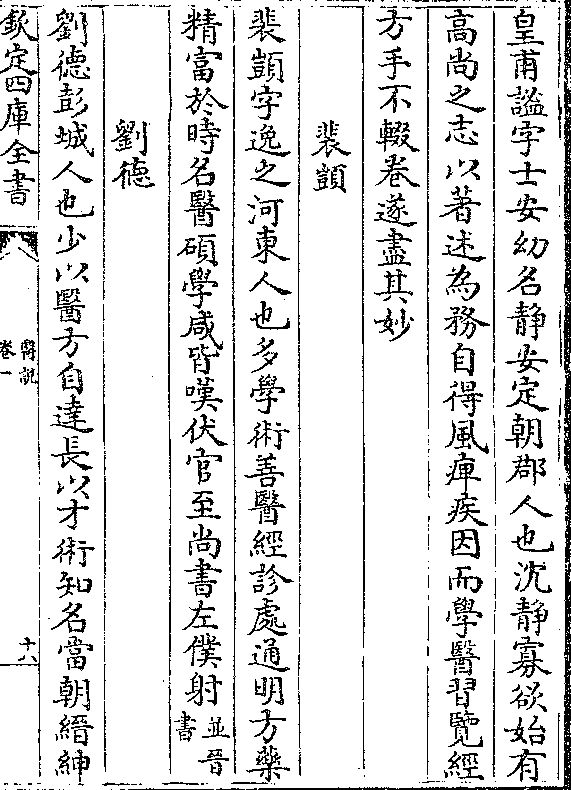 皇甫謐字士安幼名静安定朝郡人也沈静寡欲始有
高尚之志以著述為務自得風痺疾因而學醫習覽經
方手不輟卷遂盡其妙
裴頠
裴頠字逸之河東人也多學術善醫經診處通明方藥
精富於時名醫碩學咸皆嘆伏官至尚書左僕射並晉書
劉德
劉德彭城人也少以醫方自達長以才術知名當朝縉紳
欽定四庫全書
醫說
卷一
十六